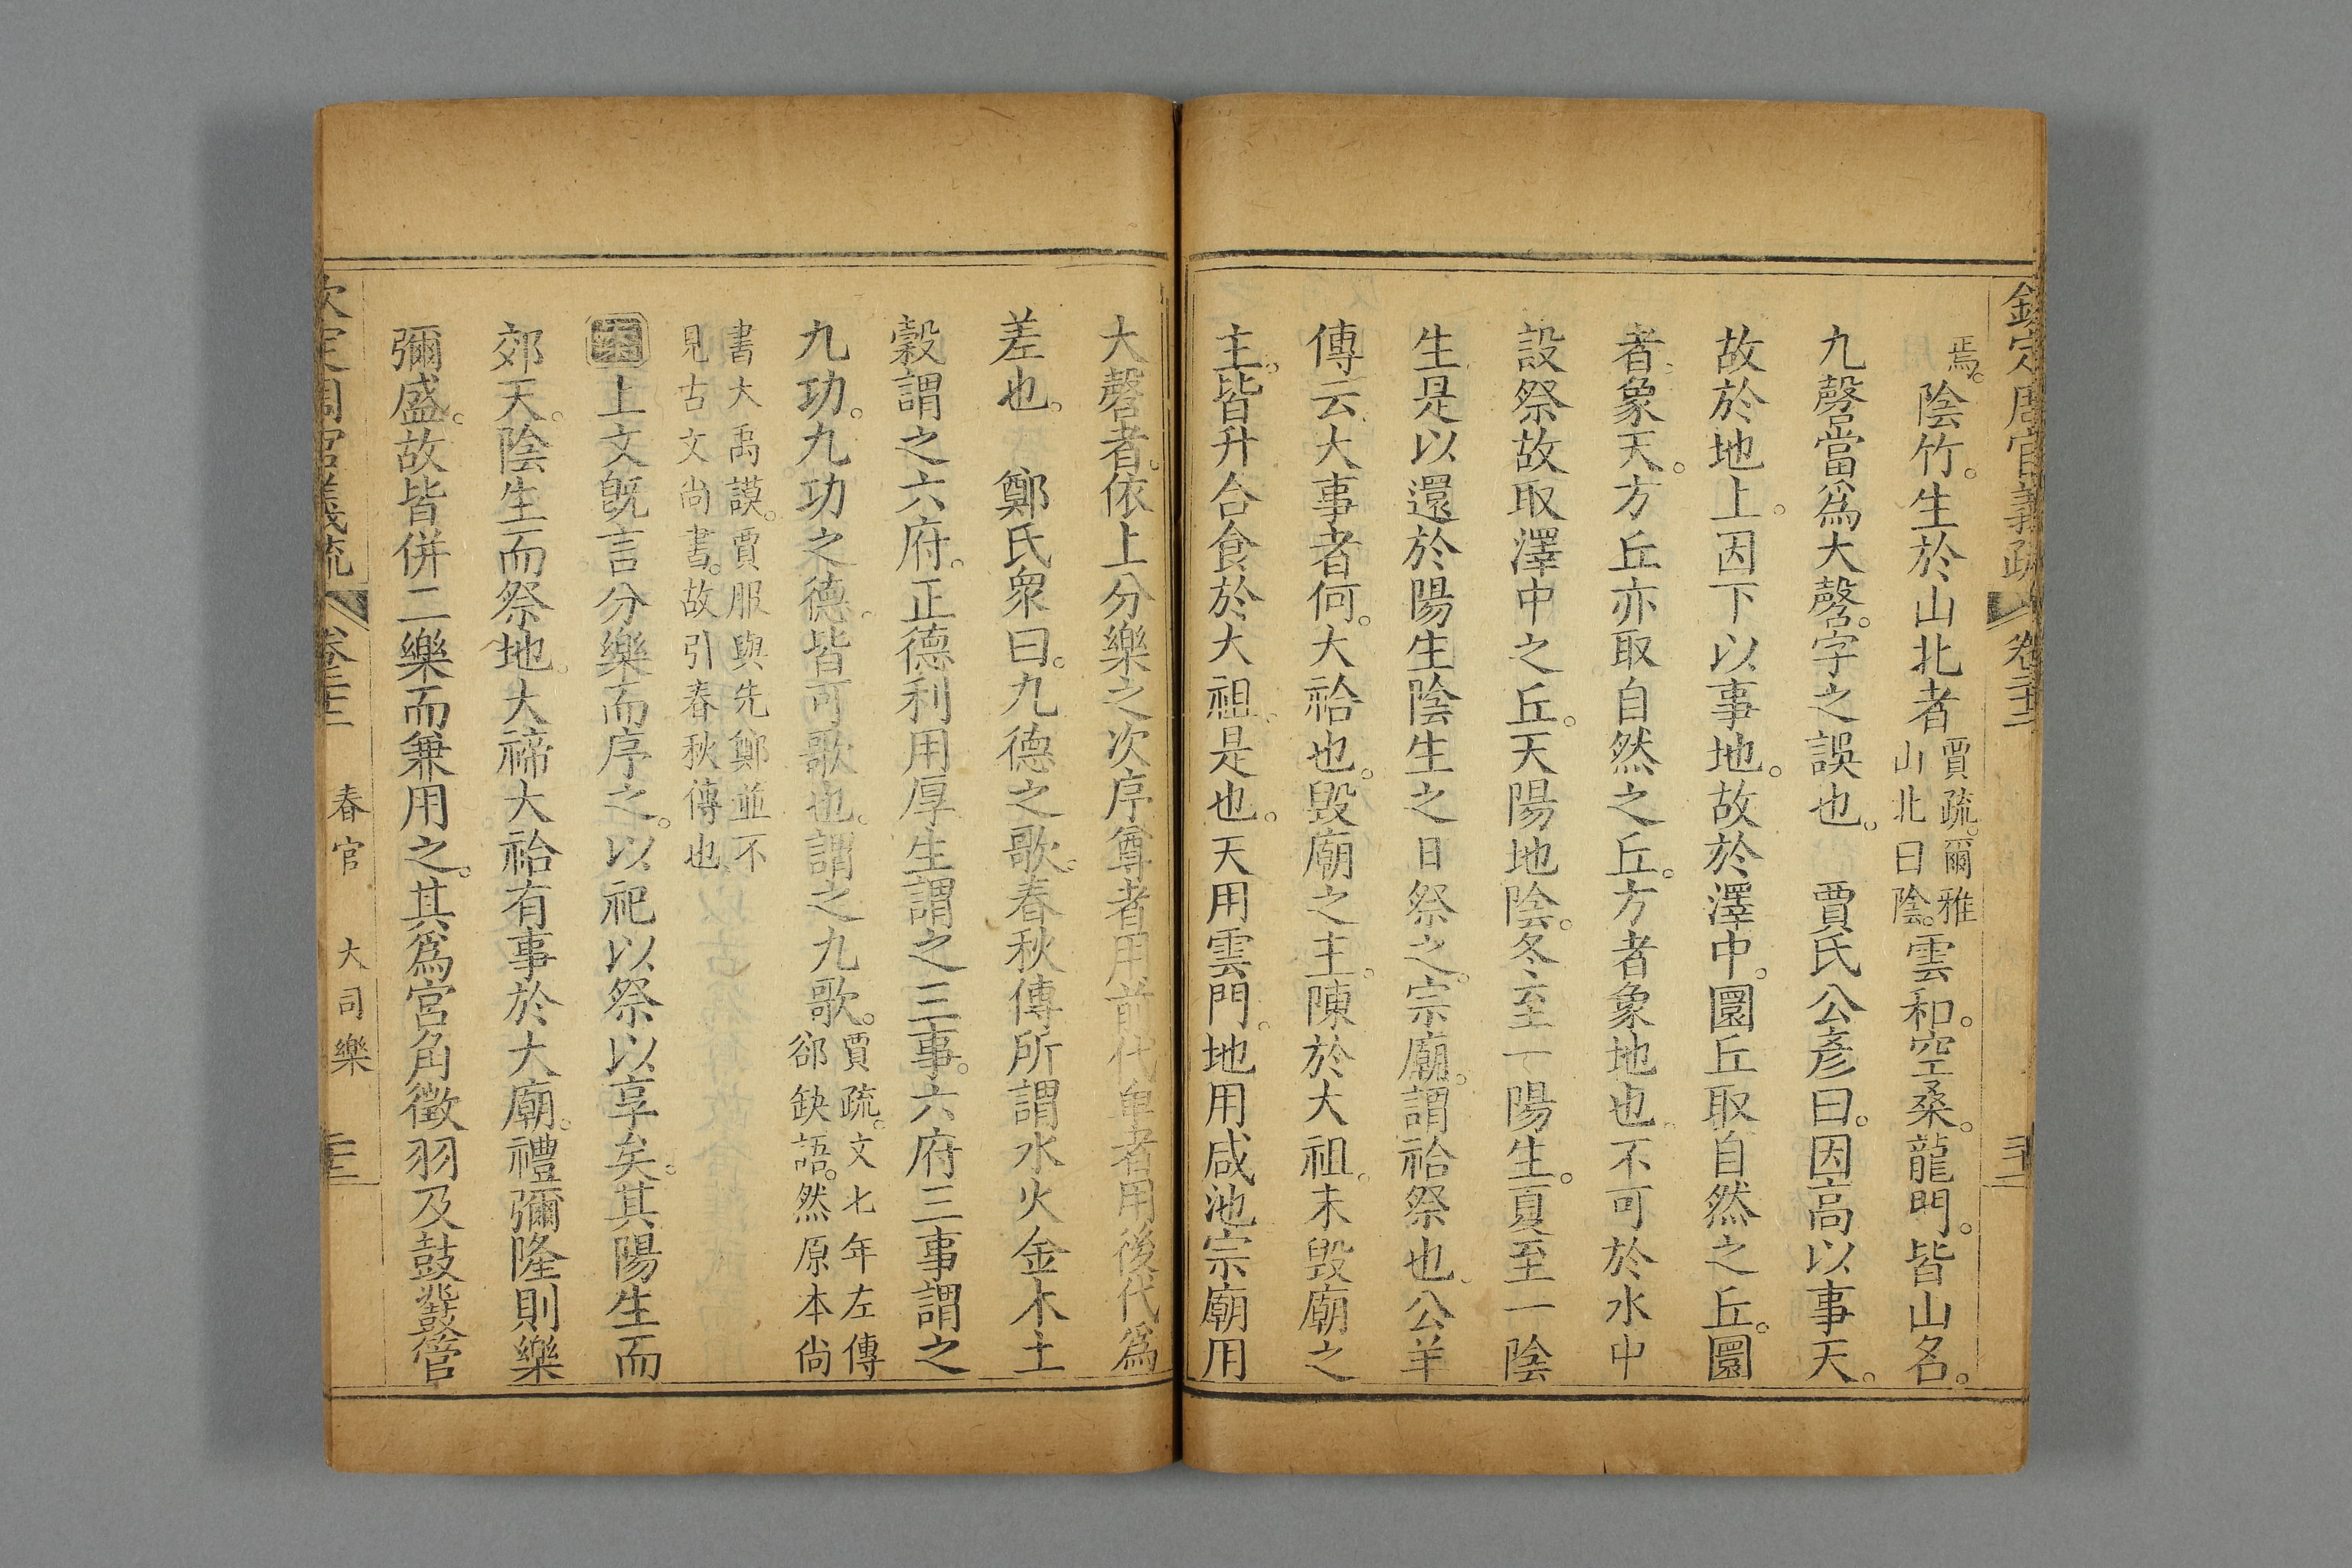 欽定周官義疏 卷二十二
焉。陰竹。生於山北者賈疏。爾雅山北曰陰。雲和。空桑。龍門。皆山名。
九㲈當爲大㲈。字之誤也。 賈氏公彥曰。因高以事天。
故於地上。因下以事地。故於澤中。圜丘取自然之丘。圜
者。象天。方丘亦取自然之丘。方者象地也。不可於水中
設祭故取澤中之丘。天陽地陰。冬至一陽生。夏至一陰
生是以還於陽生陰生之日祭之。宗廟。謂祫祭也。公羊
傳云大事者何。大祫也。毀廟之主。陳於大祖。未毀廟之
主。皆升合食於大祖。是也。天用雲門。地用咸池宗廟用
大㲈者。依上分樂之次序尊者用前代卑者用後代爲
差也。 鄭氏衆曰。九德之歌。春秋傳所謂水火金木土
穀謂之六府。正德利用厚生謂之三事。六府三事謂之
九功。九功之德。皆可歌也。謂之九歌。賈疏。文七年左傳郤缺語。然原本尙
書大禹謨。賈服與先鄭並不見古文尚書。故引春秋傳也
案上文旣言分樂而序之。以祀以祭以享矣。其陽生而
郊天。陰生而祭地。大禘大祫有事於大廟。禮彌隆則樂
彌盛。故皆併二樂而兼用之。其爲宮角徵羽及鼓鼗管
欽定周官義疏 卷二十二 春官 大司樂